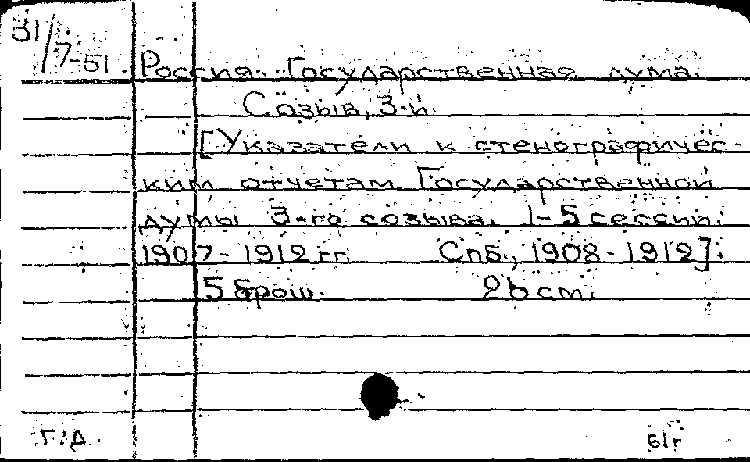 31/7-51 Россия. Государственная дума.
Созыв, 3-й.
[Указатели к стенографичес-
ким отчетам Государственной
думы 3-го созыва. 1-5 сессии.
1907-1912 гг. Спб., 1908-1912].
5 брош. 26 см.
Г/Д 61г